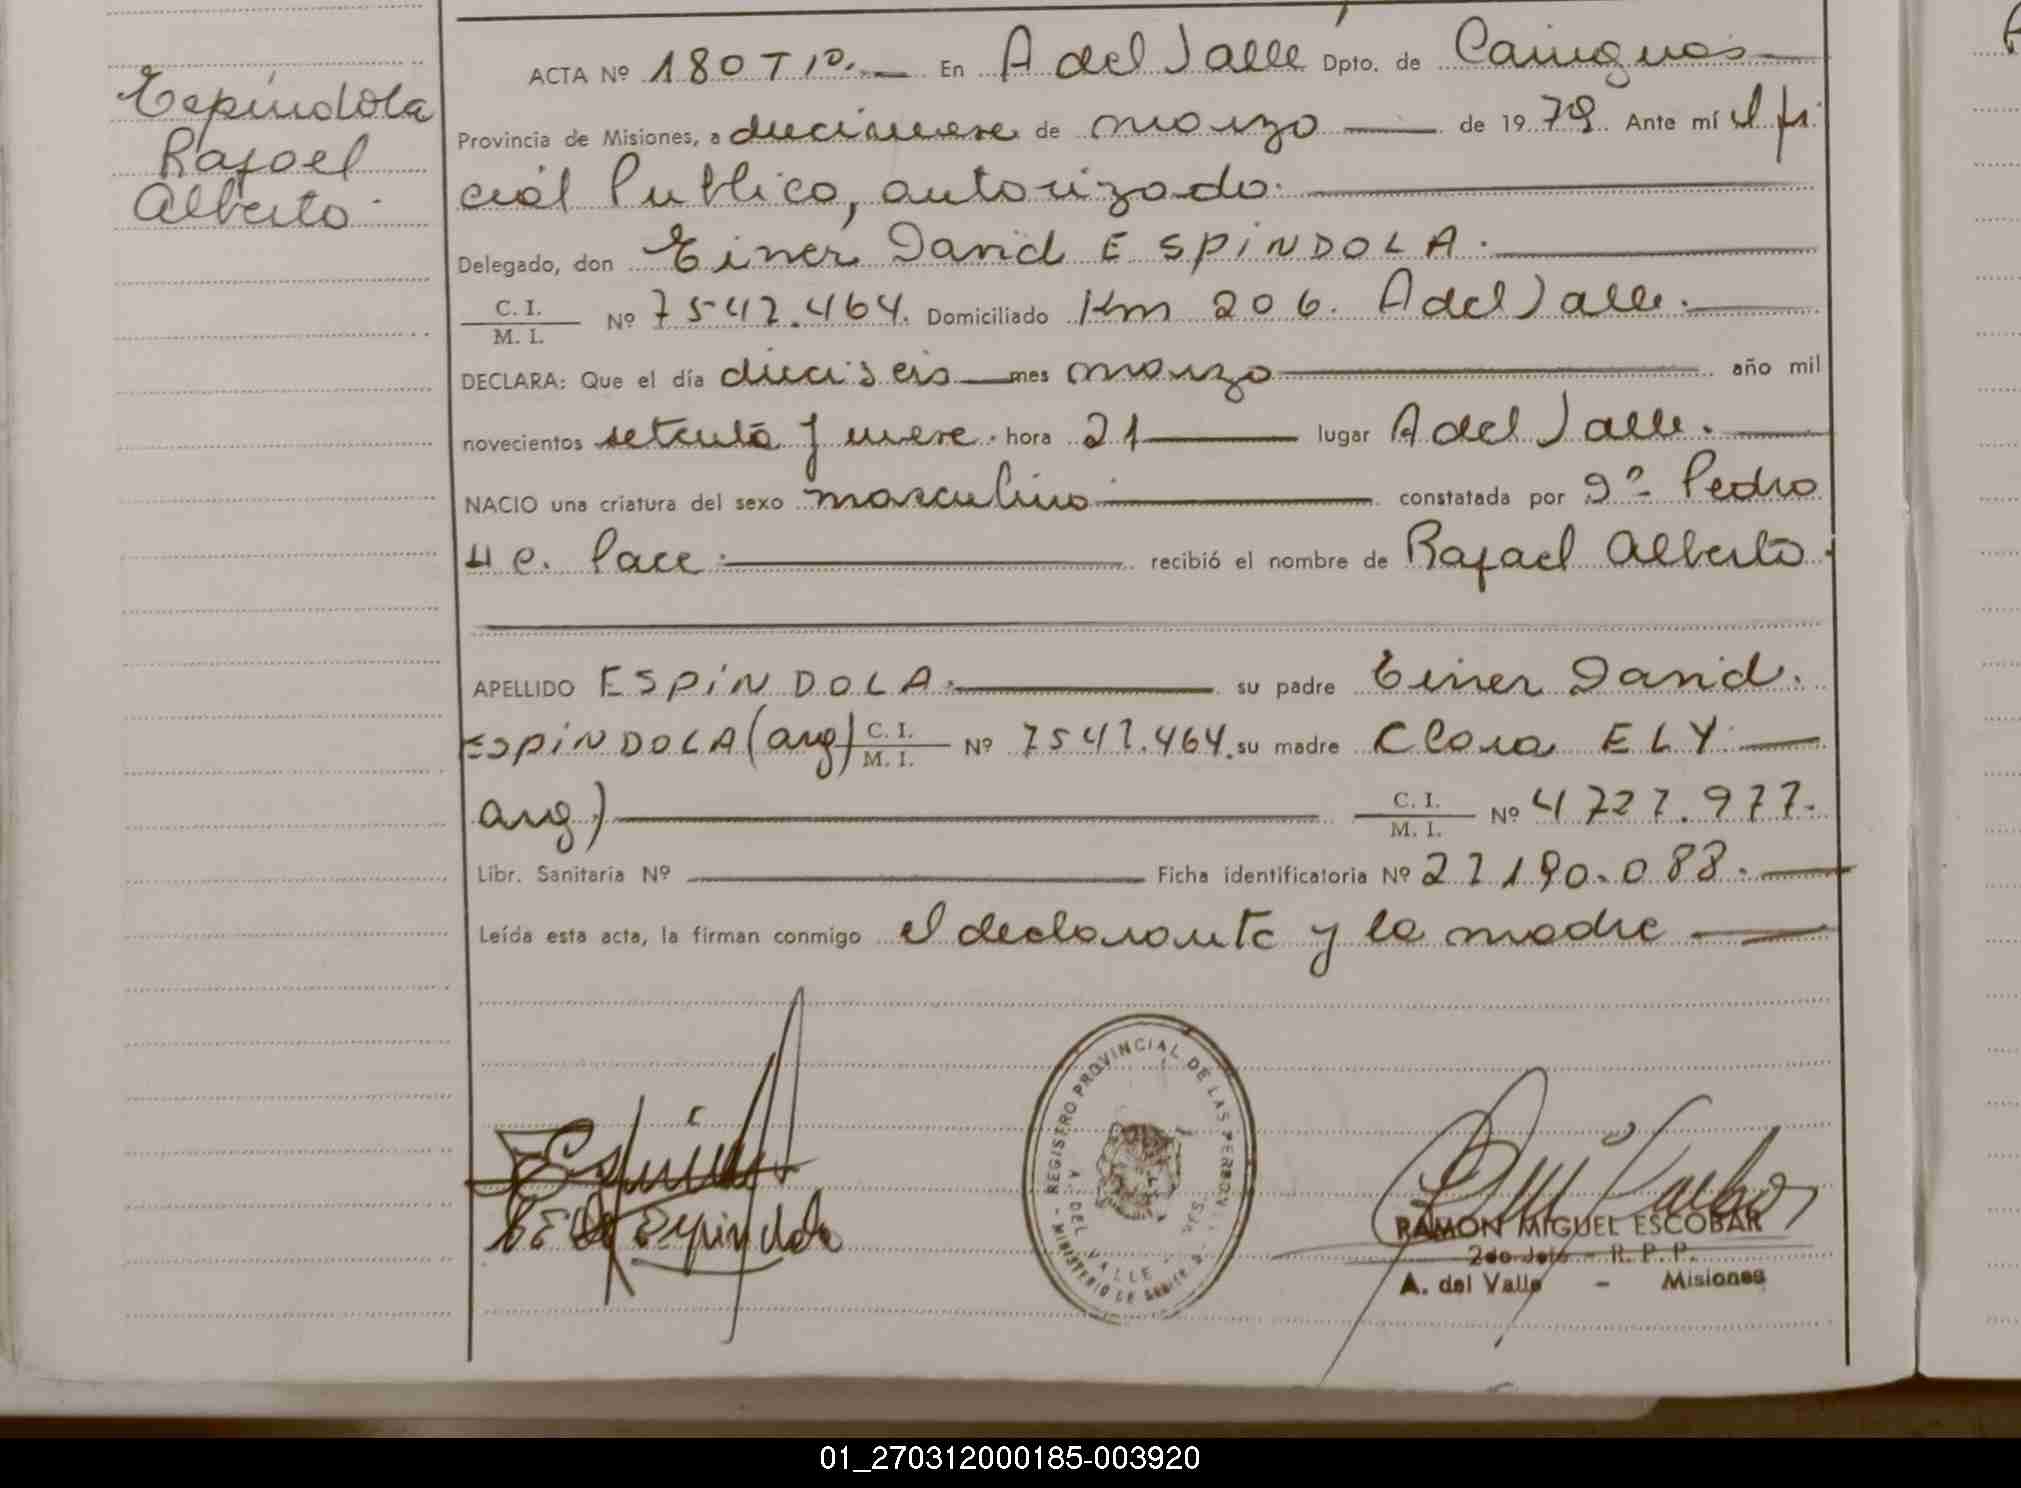 Espíndola
Rafael
Alberto.
ACTA Nº 180 T 1º.— En A del Valle Dpto. de Cainguas
Provincia de Misiones, a diecinueve de marzo de 1979 Ante mí el ofi
cial Publico, autorizado.
Delegado, don Einer David ESPINDOLA.
C. I.
M. I. Nº 7547.464. Domiciliado Km 206. A del Valle.
DECLARA: Que el día dieciseis mes marzo año mil
novecientos setenta y nueve. hora 21 lugar A del Valle.
NACIO una criatura del sexo masculino constatada por Pedro
recibió el nombre de Rafael Alberto.
APELLIDO ESPINDOLA. su padre Einer David.
ESPINDOLA (arg) C. I.
M. I. Nº 7547.464. su madre Clara ELY
arg) C. I.
M. I. Nº 4727.977.
Libr. Sanitaria Nº Ficha identificatoria Nº 27190.088.
Leída esta acta, la firman conmigo el declarante y la madre
REGISTRO PROVINCIAL DE LAS PERSONAS
A. DEL VALLE
Espindola
RAMON MIGUEL ESCOBAR
2do Jefe - R. P. P.
A. del Valle - Misiones
01_270312000185-003920